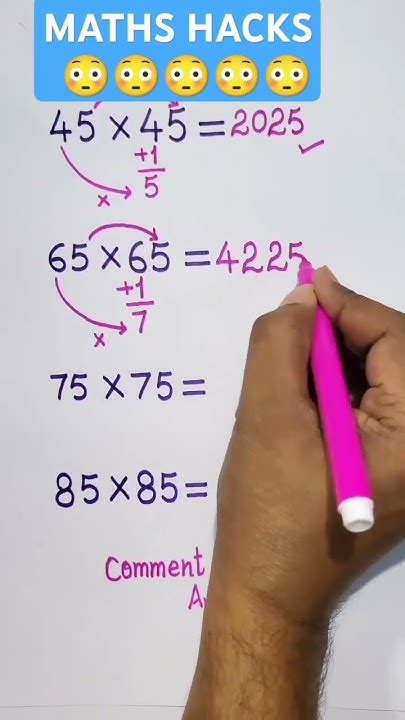 MATHS HACKS
😳😳😳😳😳
45 × 45 = 2025 ✓
+1
5
×
65 × 65 = 4225
+1
7
×
75 × 75 =
85 × 85 =
Comment